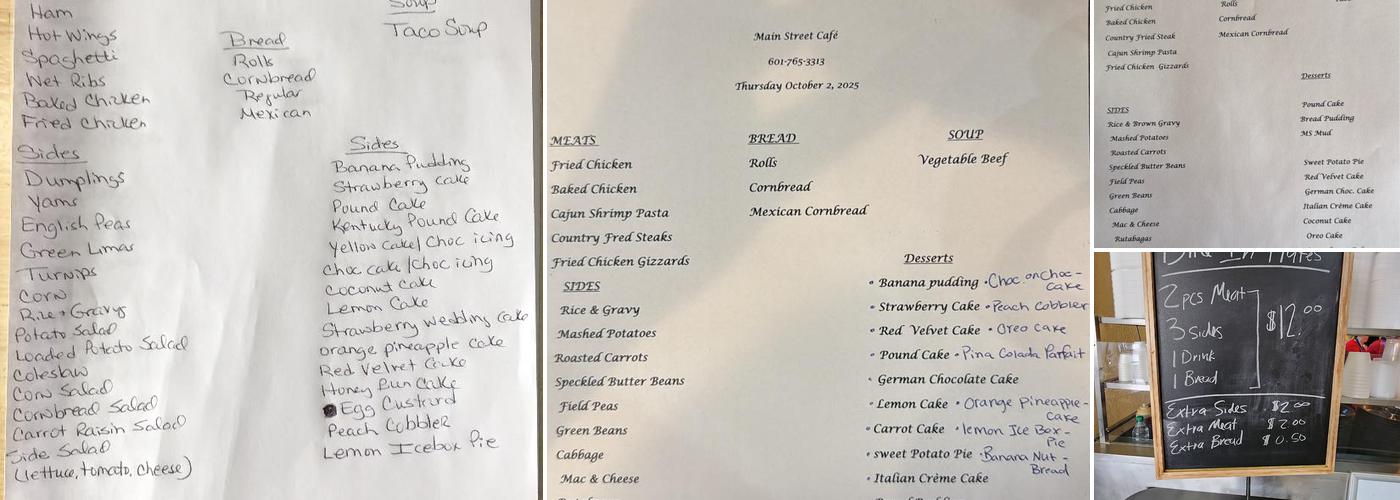 Ham
Hot Wings
Spaghetti
Wet Ribs
Baked Chicken
Fried Chicken
Sides
Dumplings
Yams
English Peas
Green Limas
Turnips
Corn
Rice + Gravy
Potato Salad
Loaded Potato Salad
Coleslaw
Corn Salad
Cornbread Salad
Carrot Raisin Salad
Side Salad
(lettuce, tomato, cheese)
Bread
Rolls
Cornbread
Regular
Mexican
Soup
Taco Soup
Sides
Banana Pudding
Strawberry cake
Pound Cake
Kentucky Pound Cake
Yellow cake/Choc icing
Choc cake/Choc icing
Coconut cake
Lemon Cake
Strawberry wedding cake
orange pineapple cake
Red Velvet Cake
Honey Bun Cake
Egg Custard
Peach Cobbler
Lemon Icebox Pie
Main Street Café
601-765-3313
Thursday October 2, 2025
MEATS
Fried Chicken
Baked Chicken
Cajun Shrimp Pasta
Country Fred Steaks
Fried Chicken Gizzards
SIDES
Rice & Gravy
Mashed Potatoes
Roasted Carrots
Speckled Butter Beans
Field Peas
Green Beans
Cabbage
Mac & Cheese
BREAD
Rolls
Cornbread
Mexican Cornbread
SOUP
Vegetable Beef
Desserts
• Banana pudding • Choc. on Choc - cake
• Strawberry Cake • Peach Cobbler
• Red Velvet Cake • Oreo cake
• Pound Cake • Pina Colada Parfait
• German Chocolate Cake
• Lemon Cake • Orange Pineapple - cake
• Carrot Cake • lemon Ice Box - Pie
• sweet Potato Pie • Banana Nut - Bread
• Italian Crème Cake
Fried Chicken
Baked Chicken
Country Fried Steak
Cajun Shrimp Pasta
Fried Chicken Gizzards
Rolls
Cornbread
Mexican Cornbread
SIDES
Rice & Brown Gravy
Mashed Potatoes
Roasted Carrots
Speckled Butter Beans
Field Peas
Green Beans
Cabbage
Mac & Cheese
Rutabagas
Desserts
Pound Cake
Bread Pudding
MS Mud
Sweet Potato Pie
Red Velvet Cake
German Choc. Cake
Italian Crème Cake
Coconut Cake
Oreo Cake
Dine In Plates
2 pcs Meat
3 Sides
1 Drink
1 Bread
$12.00
Extra Sides $2.00
Extra Meat $2.00
Extra Bread $0.50